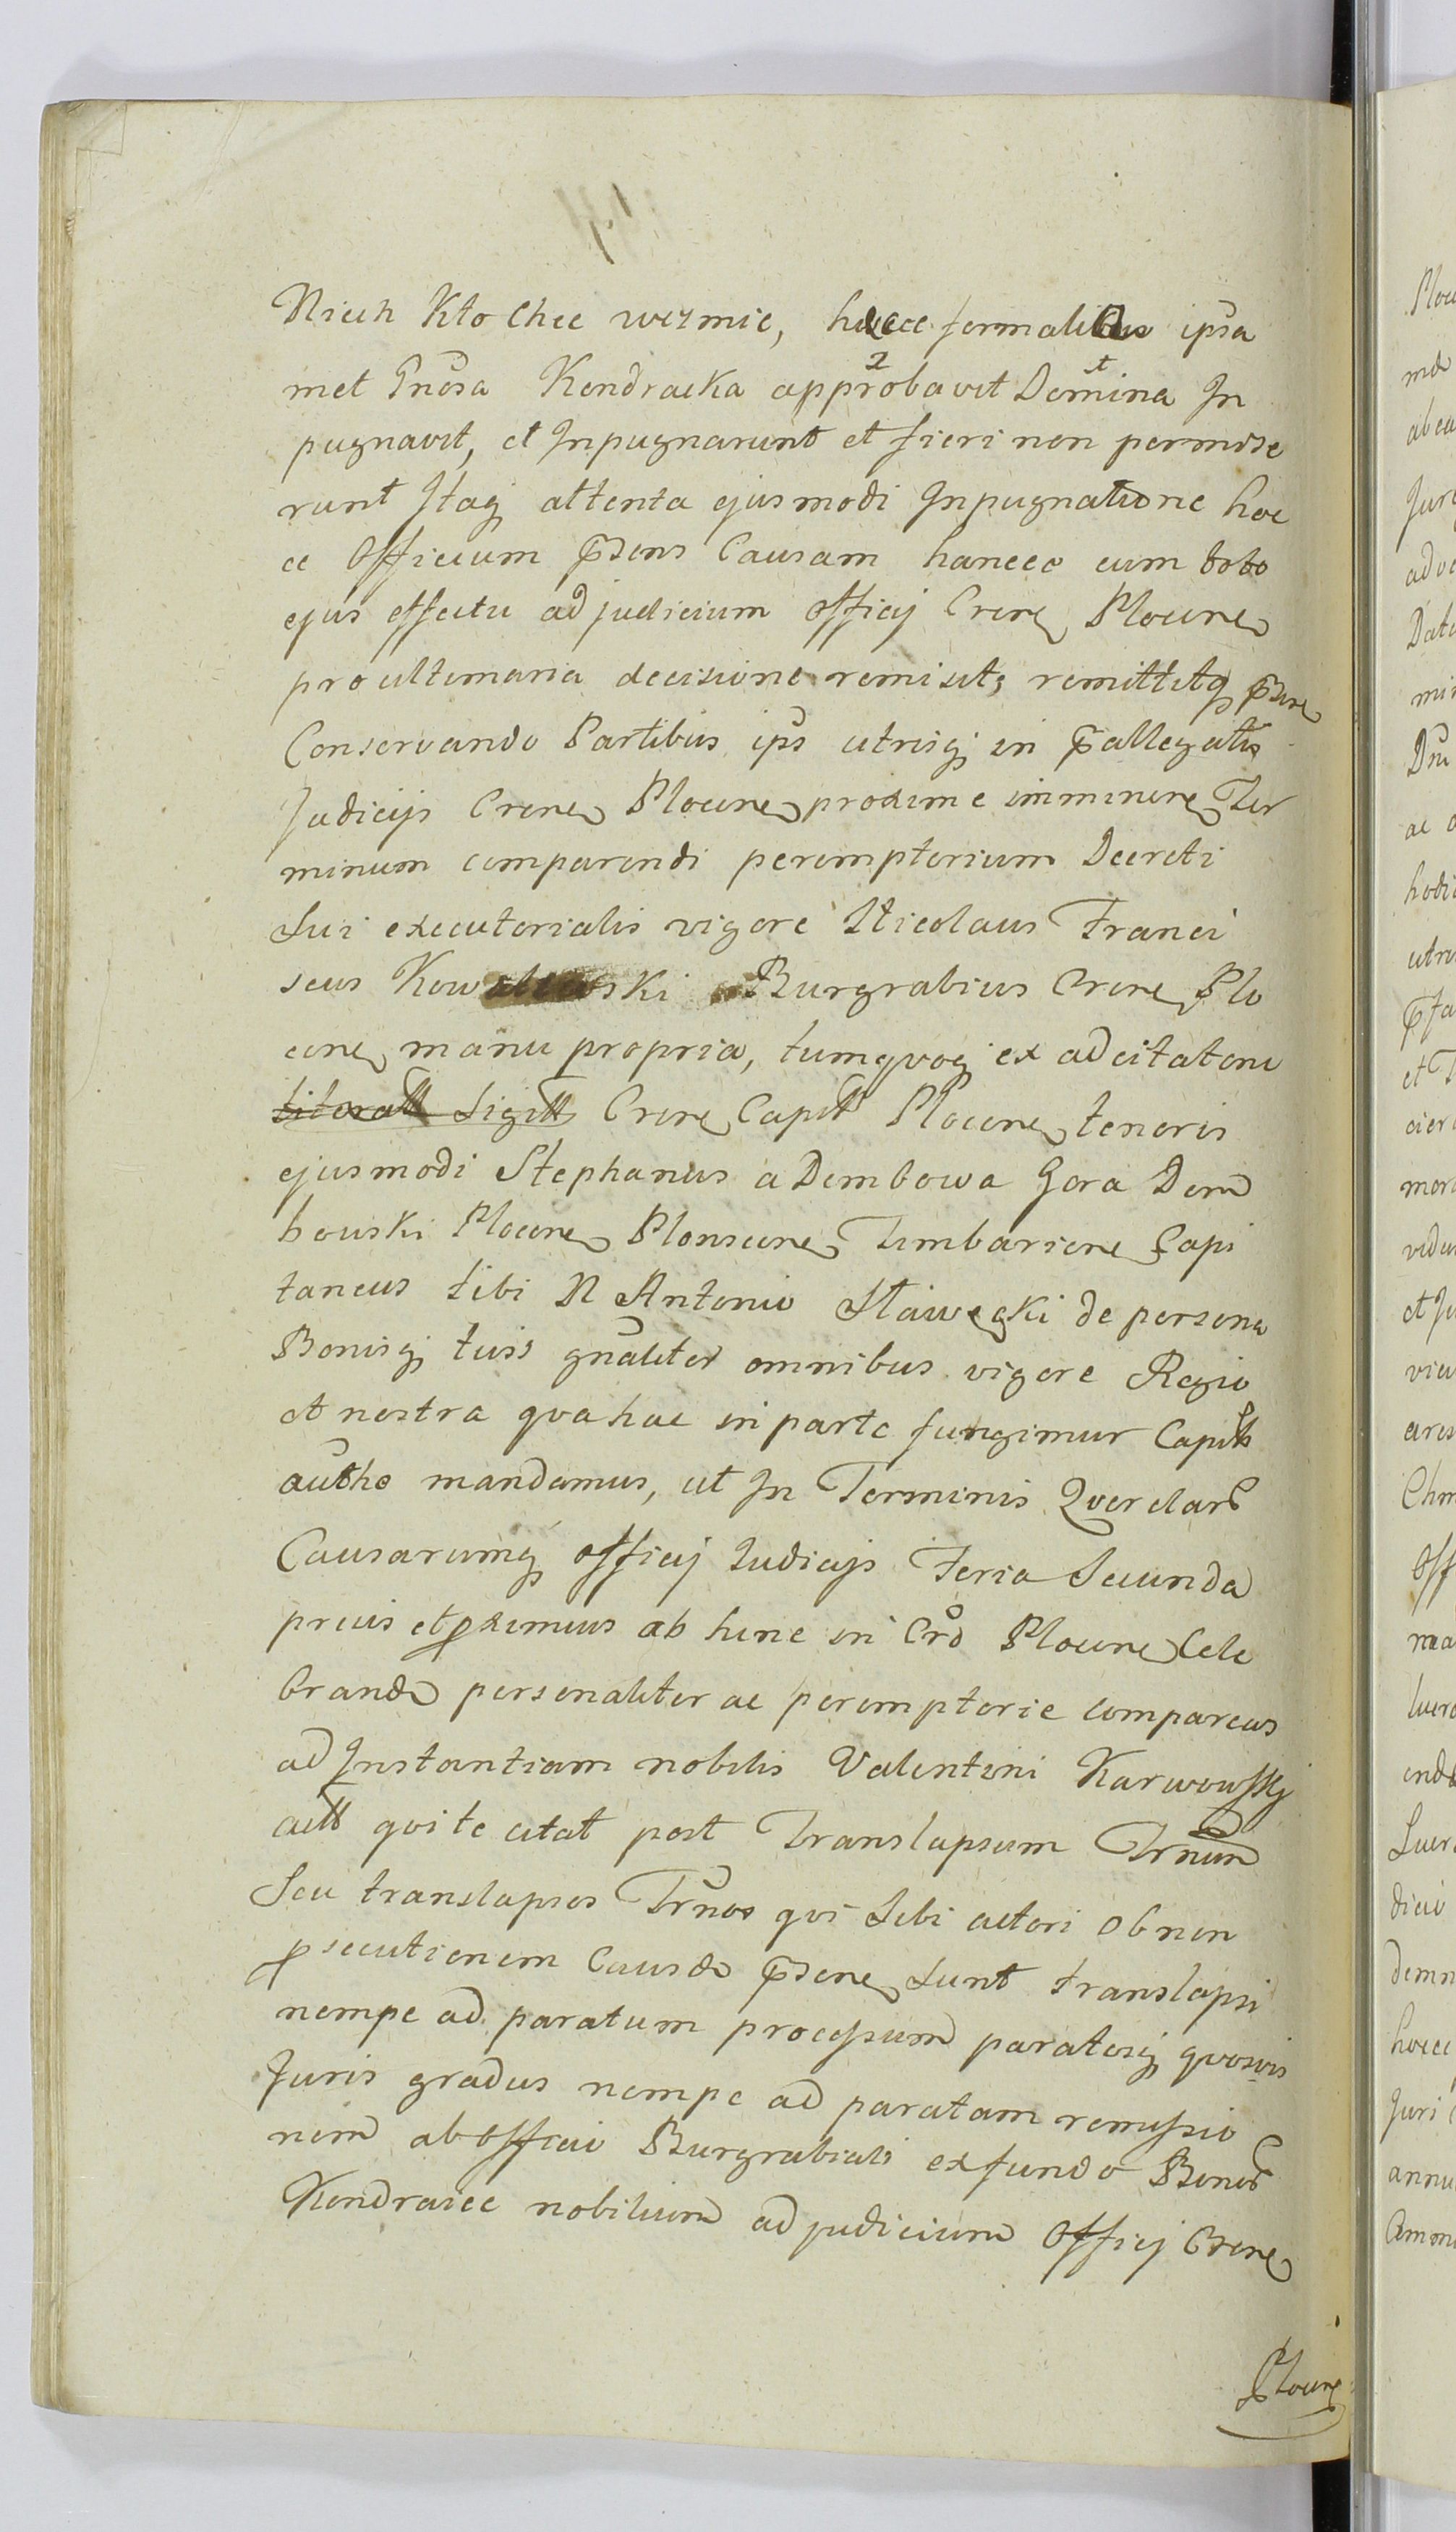 Niech Kto Chce wezmie, haece formalibus ipsa
met Gnosa Kendracka approbavit Domina In
pugnavit, et Inpugnarunt et fieri non permise
runt Itaq attenta ejusmodi Inpugnatione hoc
ce Officium p̄sens Causam hancce cum toto
ejus effectu ad judicium officij Crens Plocens
pro ultimaria decisione remisit, remittitq p̄sens
Conservando Partibus ips utrisq in p̄allegatis
Judicijs Crens Plocens proxime imminens Ter
minum comparendi peremptorium Decreti
Sui executorialis vigore Nicolaus Franci
scus Kowalewski Burgrabius Crens Plo
cens manu propria, tumqvoq ex ad citatoni
Crens Capitt Plocens tenoris
ejusmodi Stephanus a Dembowa Gora Dem
bowski Plocens Plonscens Timbariens Capi
taneus tibi N Antonio Sławęcki de persona
Bonisq tuis gnaliter omnibus vigore Regio
et nostra qva hac in parte fungimur Capitt
autho mandamus, ut In Terminis Qverelar
Causarumq officij Judicijs Feria Secunda
prius et proximius ab hinc in Cro Plocens Cele
brand personaliter ac peremptorie compareas
ad Instantiam nobilis Valentini Karwowskj
actt qvi te citat post Translapsum Trnum
Seu translapsos Trnos qvi Sibi actori ob non
prsecutionem Causae p̄sens Sunt translapsi
nempe ad paratum processum paratosq qvosvis
Juris gradus nempe ad paratam remissio
nem ab officio Burgrabiali ex fundo Bonor
Kendraice nobilium ad judicium Officij Crens
Plocens